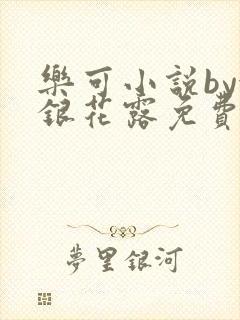 樂可小說by
銀花露免費
夢里銀河